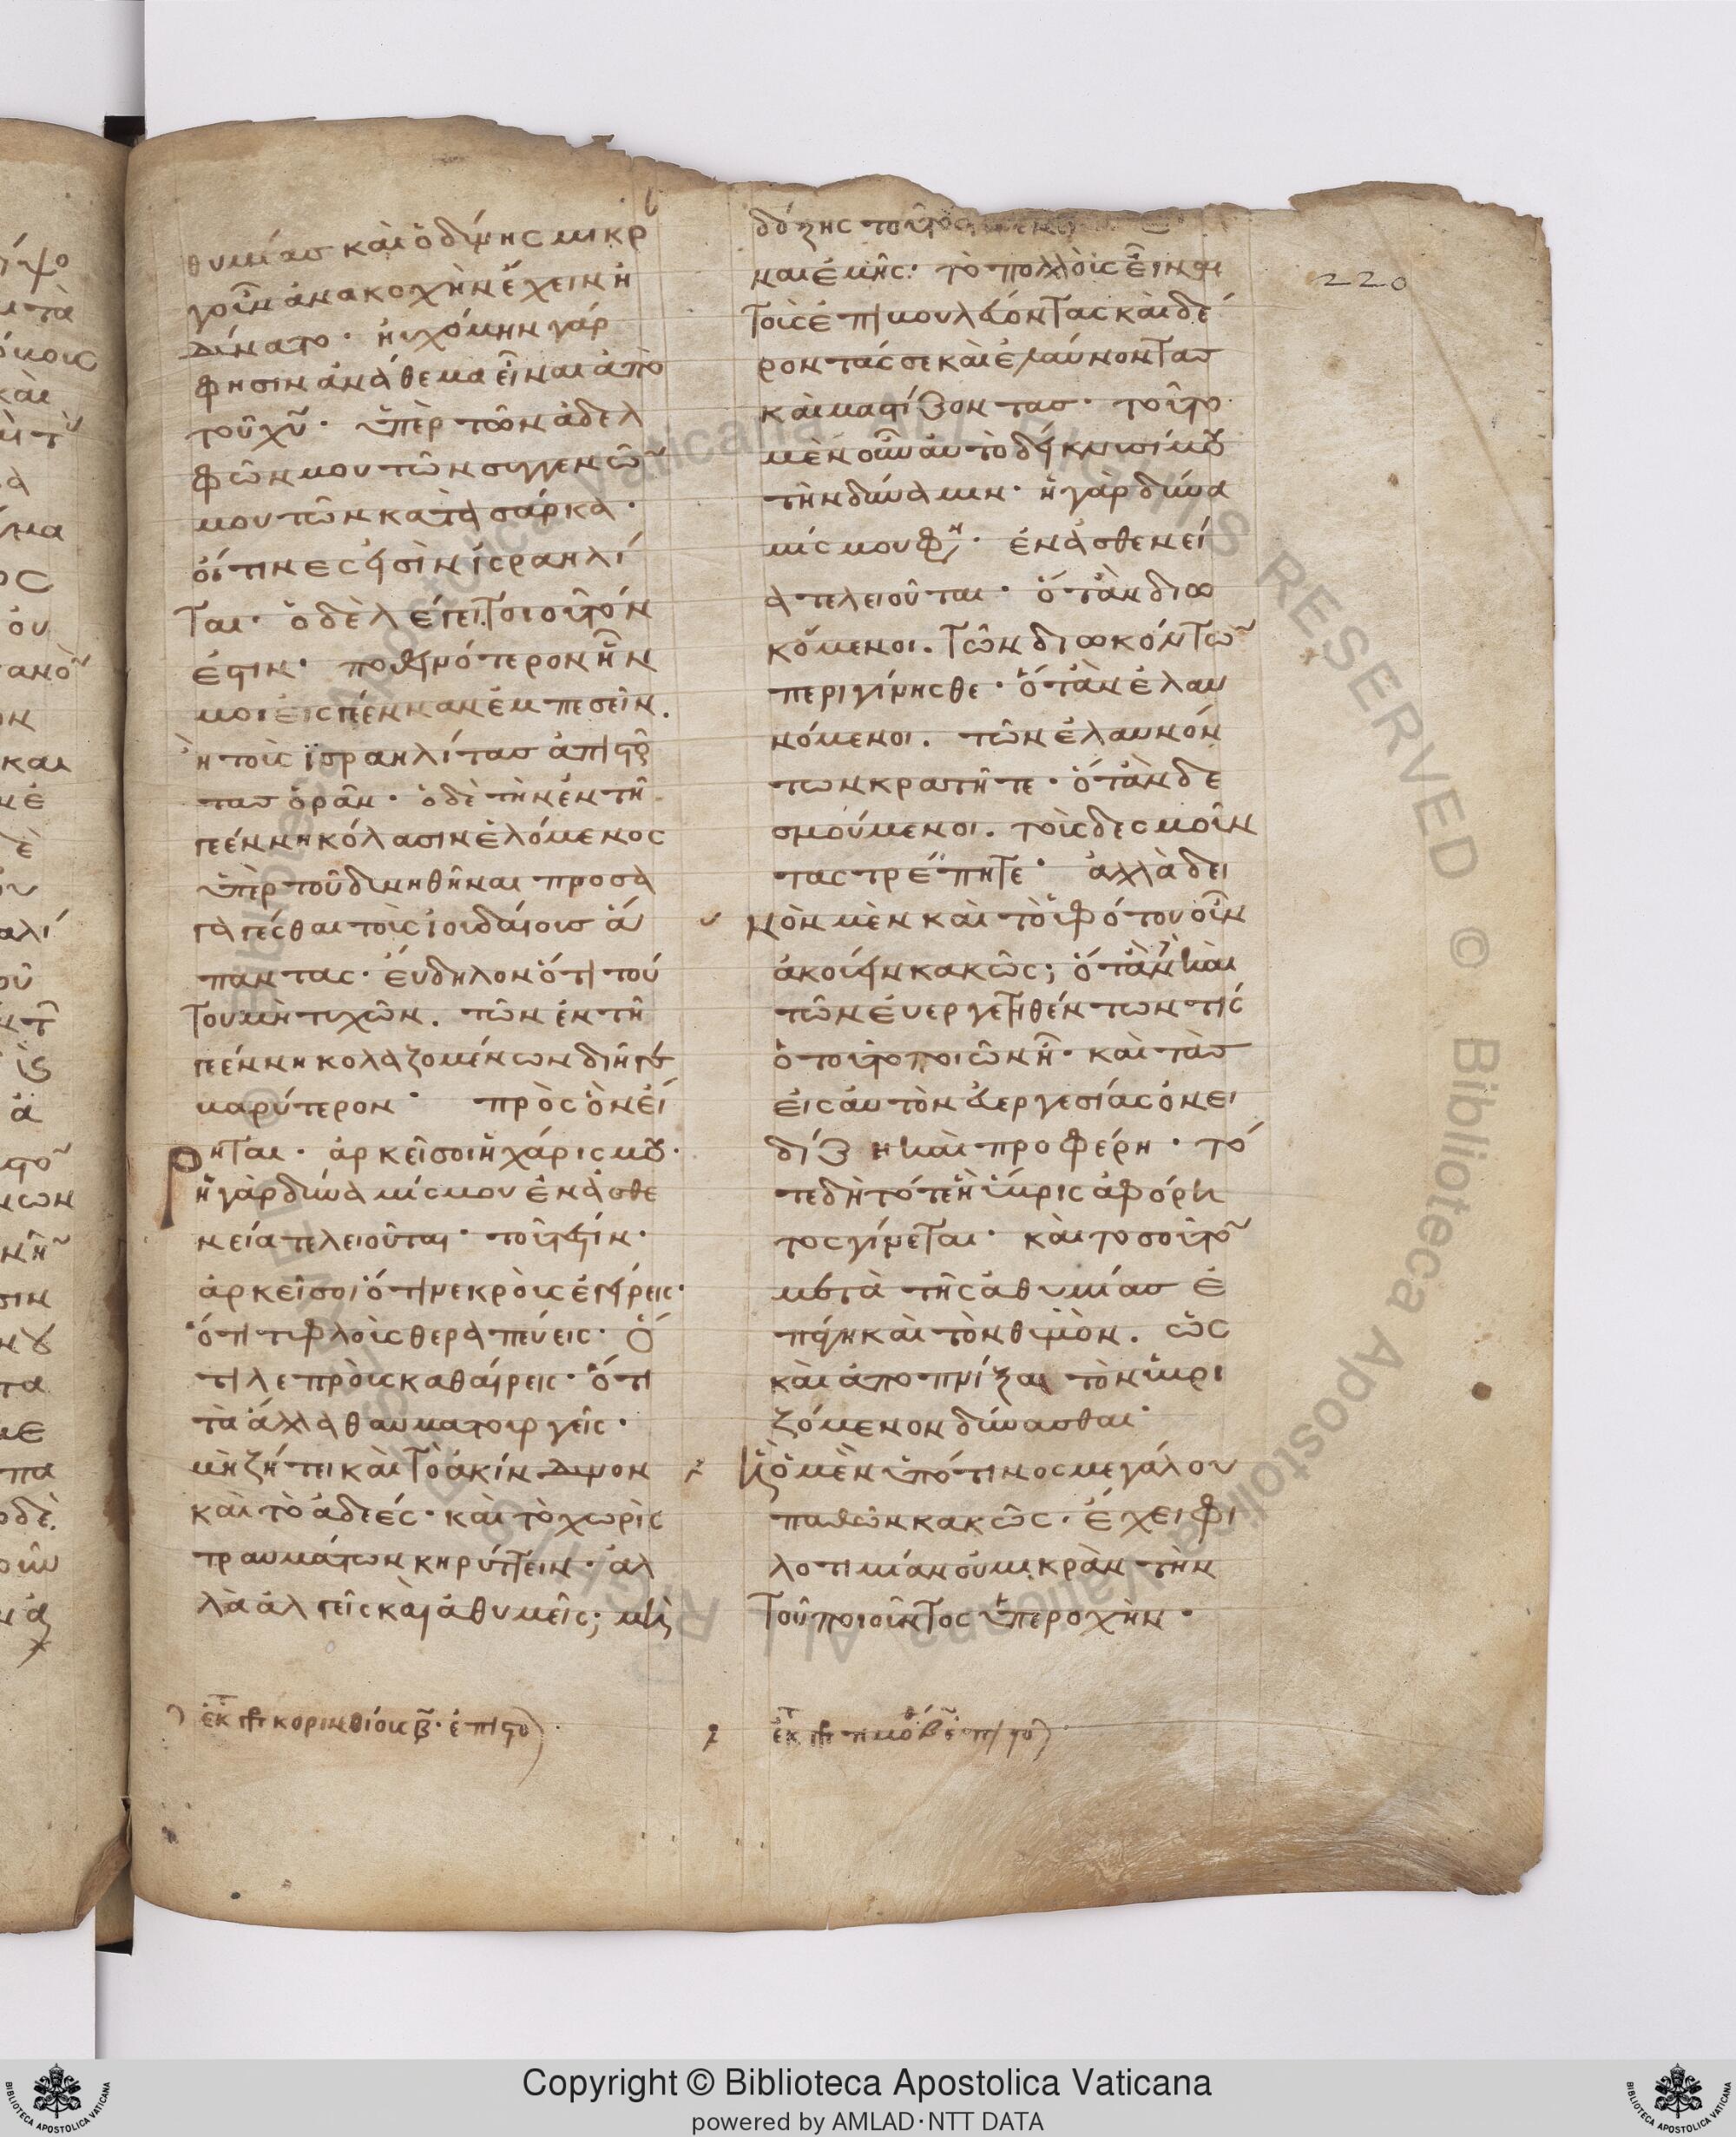 θυμίας καὶ ὀδύνης μικρ
γοῦν ἀνακοχὴν ἔχειν ἠ
δύνατο· ηὐχόμην γάρ
φησιν ἀνάθεμα εἶναι ἀπὸ
τοῦ χυ̅· ὑπὲρ τῶν ἀδελ
φῶν μου τῶν συγγενῶ̅
μου τῶν κατὰ σάρκα·
οἵτινες εἰσὶν ἰσραηλῖ
ται· ὃ δὲ λέγει τοιοῦτόν
ἐστιν· ποθεινότερον ἦν
μοι εἰς γέενναν ἐμπεσεῖν.
ἢ τοὺς ἰσραηλίτας ἀπιστοῦν
τας ὁρᾶν· ὁ δὲ τὴν ἐν τῇ
γεέννη κόλασιν ἑλόμενος
ὑπὲρ τοῦ δυνηθῆναι προσα
γαγέσθαι τοὺς ἰουδαίους ἅ
παντας· εὔδηλον ὅτι τού
του μὴ τυχῶν. τῶν ἐν τῇ
γεέννη κολαζομένων διῆγε
βαρύτερον· πρὸς ὃν εἴ
ρηται· ἀρκεῖ σοι ἡ χάρις μου·
ἡ γὰρ δύναμίς μου ἐν ἀσθε
νεία τελειοῦται· τουτέστιν·
ἀρκεῖ σοι ὅτι νεκροὺς ἐγείρεις·
ὅτι τυφλοὺς θεραπεύεις· ὅ
τι λεπροὺς καθαίρεις· ὅτι
τὰ ἄλλα θαυματουργεῖς·
μὴ ζήτει καὶ τὸ ἀκίνδυνον
καὶ τὸ ἀδεές· καὶ τὸ χωρὶς
τραυμάτων κηρύττειν· ἀλ
λὰ ἀλγεῖς καὶ ἀθυμεῖς; μὴ
ἐκ τῆς κορινθίοις β̅· ἐπιστο)
δόξης τοῦτο
ναι ἐμῆς· τὸ πολλοὺς εἶναι
τοὺς ἐπιβουλεύοντας καὶ δέ
ροντάς σε καὶ ἐλαύνοντας
καὶ μαστίζοντας· τοῦτο
μὲν οὖν αὐτὸ δείκνυσί μου
τὴν δύναμιν· ἡ γὰρ δύνα
μίς μου φη· ἐν ἀσθενεί
α τελειοῦται· ὅταν διω
κόμενοι. τῶν διωκόντω̅
περιγίνησθε· ὅταν ἐλαυ
νόμενοι. τῶν ἐλαυνόν
των κρατῆτε· ὅταν δε
σμούμενοι. τοὺς δεσμοῦν
τας τρέπητε· ἀλλὰ δει
νὸν μὲν καὶ τὸ ὑφ' ὁτουοῦν
ἀκούειν κακῶς; ὅταν δὲ καὶ
τῶν εὐεργετηθέντων τις
ὁ τοῦτο ποιῶν ῇ· καὶ τὰς
εἰς αὐτὸν εὐεργεσίας ὀνει
δίζη καὶ προφέρη· τό
τε δὴ τότε ἡ ὕβρις ἀφόρη
τος γίνεται· καὶ τοσοῦτο̅
μετὰ τῆς ἀθυμίας ἐ
πάγη καὶ τὸν θυμὸν. ὡς
καὶ ἀποπνίξαι τὸν ὑβρι
ζόμενον δύνασθαι·
καὶ ὁ μὲν ὑπό τινος μεγάλου
παθὼν κακῶς· ἔχει φι
λοτιμίαν οὐ μικρὰν τὴν
τοῦ ποιοῦντος ὑπεροχὴν·
ἐκ τῆς τιμοθ β̅ ἐπιστο)
220
Copyright © Biblioteca Apostolica Vaticana
powered by AMLAD·NTT DATA